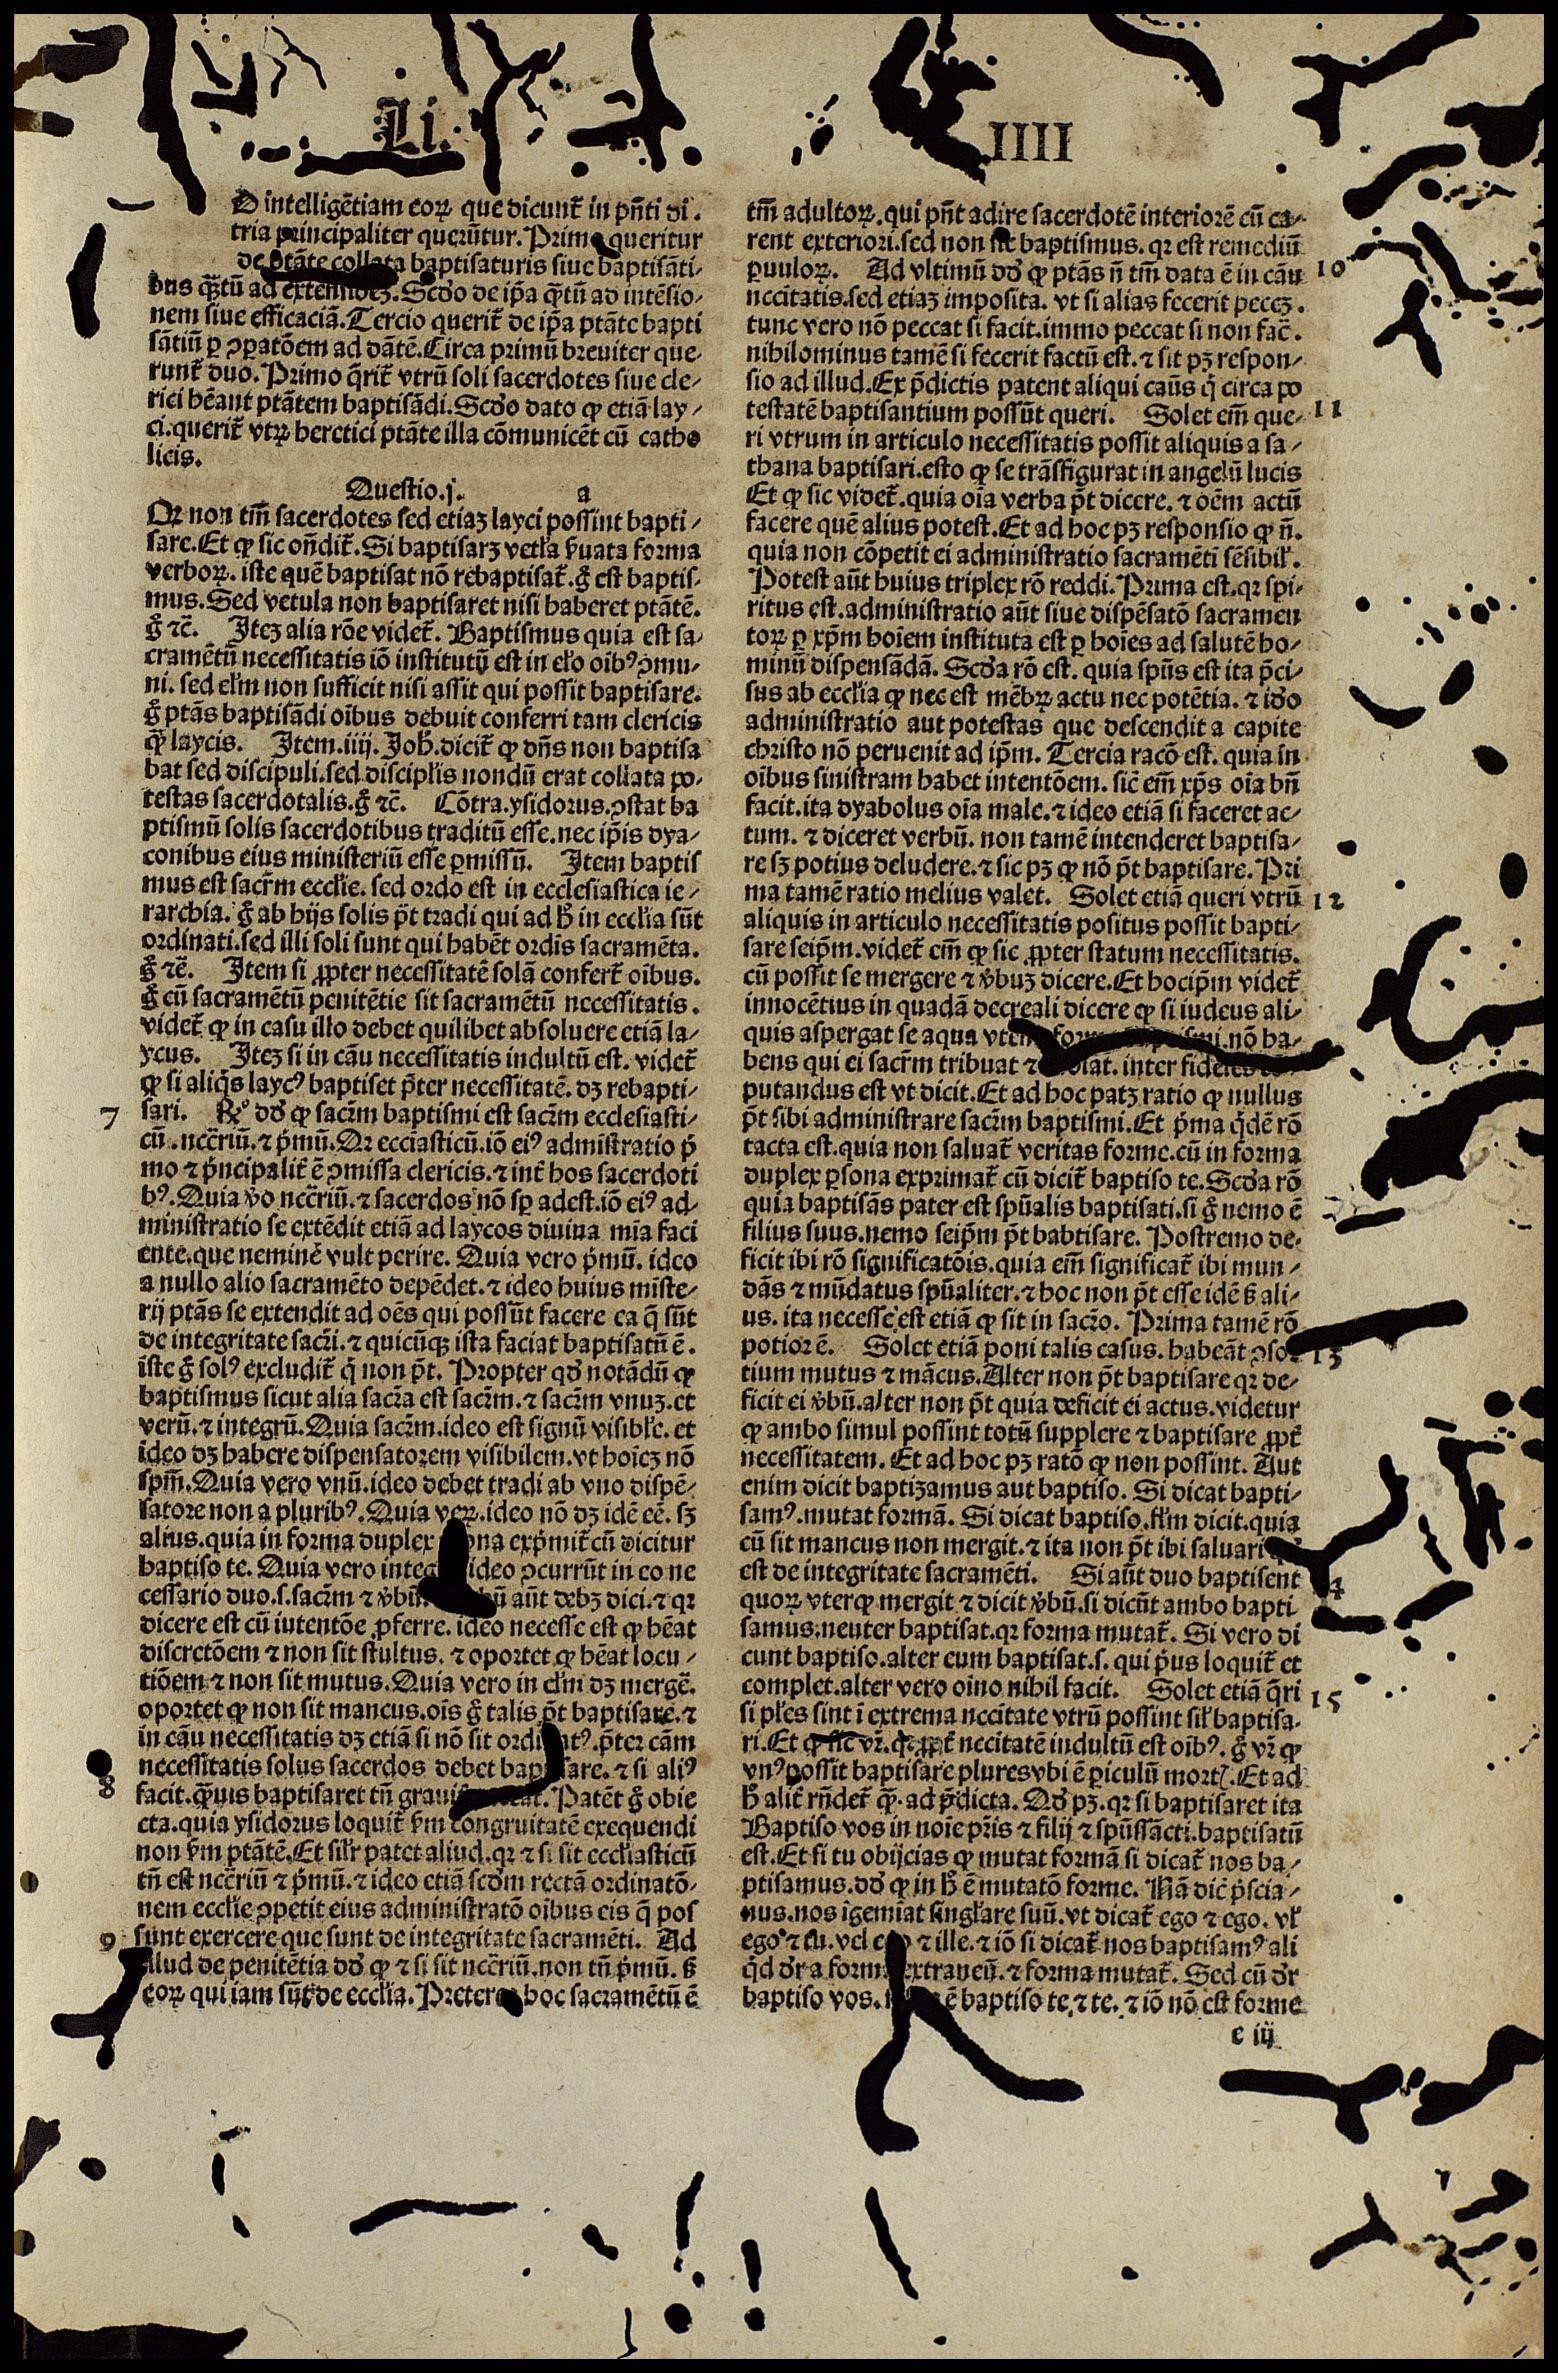 Li.
IIII
D intelligẽtiam eoꝝ que dicunt᷑ in pñti di.
tria principaliter querũtur. Primo queritur
de ptãte collata baptisaturis siue baptisãti⸗
bus q̃ꝫtũ ad Scd̃o de ip̃a q̃tũ ad intẽsio⸗
nem siue efficaciã. Tercio querit᷑ de ip̃a ptãte bapti
sãtiũ ꝑ ꝯꝑatõem ad dãtẽ. Circa primũ breuiter que⸗
runt᷑ duo. Primo q̃rit᷑ vtrũ soli sacerdotes siue cle⸗
rici hẽant ptãtem baptisãdi. Scd̃o dato ꝙ etiã lay⸗
ci. querit᷑ vtꝝ heretici ptãte illa cõmunicẽt cũ catho
licis.
Questio.j. a
Qꝛ non tm̃ sacerdotes sed etiaꝫ layci possint bapti⸗
sare. Et ꝙ sic oñdit᷑. Si baptisarꝫ vetl̃a ẜuata forma
verboꝝ. iste quẽ baptisat nõ rebaptisat᷑. g̊ est baptis⸗
mus. Sed vetula non baptisaret nisi haberet ptãtẽ.
g̊ ⁊c̃. Iteꝫ alia rõe videt᷑. Baptismus quia est sa⸗
cramẽtũ necessitatis iõ institutũ est in el̃o oĩbꝰ ꝯmu⸗
ni. sed el̃m non sufficit nisi assit qui possit baptisare.
g̊ ptãs baptisãdi oĩbus debuit conferri tam clericis
q̃ꝫ laycis. Item.iiij. Joh̃. dicit᷑ ꝙ dñs non baptisa
bat sed discipuli. sed discipl̃is nondũ erat collata po⸗
testas sacerdotalis. g̊ ⁊c̃. Cõtra. ysidorus. ꝯstat ba
ptismũ solis sacerdotibus traditũ esse. nec ip̃is dya⸗
conibus eius ministeriũ esse ꝑmissũ. Item baptis
mus est sacr̃m eccl̃ie. sed ordo est in ecclesiastica ie⸗
rarchia. g̊ ab hijs solis p̃t tradi qui ad h̃ in eccl̃ia sũt
ordinati. sed illi soli sunt qui habẽt ordĩs sacramẽta.
g̊ ⁊c̃. Item si ꝓpter necessitatẽ solã confert᷑ oĩbus.
g̊ cũ sacramẽtũ penitẽtie sit sacramẽtũ necessitatis.
videt᷑ ꝙ in casu illo debet quilibet absoluere etiã la⸗
ycus. Iteꝫ si in cãu necessitatis indultũ est. videt᷑
ꝙ si aliq̃s laycꝰ baptiset p̃ter necessitatẽ. dꝫ rebapti⸗
7 sari. R̃ꝰ dð ꝙ sacr̃m baptismi est sacr̃m ecclesiasti⸗
cũ. ncc̃riũ. ⁊ p̃mũ. Qꝛ eccl̃iasticũ. iõ eiꝰ admĩstratio p̃
mo ⁊ p̃ncipalit᷑ ẽ ꝯmissa clericis. ⁊ int᷑ hos sacerdoti
bꝰ. Quia ṽo ncc̃riũ. ⁊ sacerdos nõ sꝑ adest. iõ eiꝰ ad⸗
ministratio se extẽdit etiã ad laycos diuina mĩa faci
ente. que neminẽ vult perire. Quia vero p̃mũ. ideo
a nullo alio sacramẽto depẽdet. ⁊ ideo huius mĩste⸗
rij ptãs se extendit ad oẽs qui possũt facere ea q̃ sũt
de integritate sacr̃i. ⁊ quicũqꝫ ista faciat baptisatũ ẽ.
iste g̊ solꝰ excludit᷑ q̃ non p̃t. Propter qð notãdũ ꝙ
baptismus sicut alia sacr̃a est sacr̃m. ⁊ sacr̃m vnuꝫ. et
verũ. ⁊ integrũ. Quia sacr̃m. ideo est signũ visibil̃e. et
ideo dꝫ habere dispensatorem visibilem. vt hoĩeꝫ nõ
sp̃m̃. Quia vero vnũ. ideo debet tradi ab vno dispẽ⸗
satore non a pluribꝰ. Quia veꝝ. ideo nõ dꝫ idẽ eẽ. sꝫ
alius. quia in forma duplex exp̃mit᷑ cũ dicitur
baptiso te. Quia vero ideo ꝯcurrũt in eo ne
cessario duo. s. sacr̃m ⁊ ṽbũ. aũt debꝫ dici. ⁊ qꝛ
dicere est cũ intentõe ꝓferre. ideo necesse est ꝙ hẽat
discretõem ⁊ non sit stultus. ⁊ oportet ꝙ hẽat locu⸗
tiõem ⁊ non sit mutus. Quia vero in el̃m dꝫ mergẽ.
oportet ꝙ non sit mancus. oĩs g̊ talis p̃t baptisare. ⁊
in cãu necessitatis dꝫ etiã si nõ sit p̃ter cãm
necessitatis solus sacerdos debet ⁊ si aliꝰ
8 facit. q̃ꝫuis baptisaret tñ Patẽt g̊ obie
cta. quia ysidorus loquit᷑ ẜm congruitatẽ exequendi
non ẜm ptãtẽ. Et sil̃r patet aliud. qꝛ ⁊ si sit eccl̃iasticũ
tñ est ncc̃riũ ⁊ p̃mũ. ⁊ ideo etiã scd̃m rectã ordinatõ⸗
nem eccl̃ie ꝯpetit eius administratõ oĩbus eis q̃ pos
9 sunt exercere que sunt de integritate sacramẽti. Ad
aliud de penitẽtia dð ꝙ ⁊ si sit ncc̃riũ. non tñ p̃mũ. ß
eoꝝ qui iam sũt de eccl̃ia. Preterea hoc sacramẽtũ ẽ
tm̃ adultoꝝ. qui pñt adire sacerdotẽ interiorẽ cũ ca⸗
rent exteriori. sed non sic baptismus. qꝛ est remediũ
10 ꝑuuloꝝ. Ad vltimũ dð ꝙ ptãs ñ tm̃ data ẽ in cãu
nccĩtatis. sed etiaꝫ imposita. vt si alias fecerit peceꝫ.
tunc vero nõ peccat si facit. immo peccat si non fac̃.
nihilominus tamẽ si fecerit factũ est. ⁊ sit pꝫ respon⸗
sio ad illud. Ex p̃dictis patent aliqui caũs q̃ circa po
11 testatẽ baptisantium possũt queri. Solet em̃ que⸗
ri vtrum in articulo necessitatis possit aliquis a sa⸗
thana baptisari. esto ꝙ se trãsfigurat in angelũ lucis
Et ꝙ sic videt᷑. quia oĩa verba p̃t dicere. ⁊ oẽm actũ
facere quẽ alius potest. Et ad hoc pꝫ responsio ꝙ ñ.
quia non cõpetit ei administratio sacramẽti sẽsibil̃.
Potest aũt huius triplex rõ reddi. Prima est. qꝛ spi⸗
ritus est. administratio aũt siue dispẽsatõ sacramen
toꝝ ꝑ xp̃m hoĩem instituta est ꝑ hoĩes ad salutẽ ho⸗
minũ dispensãdã. Scd̃a rõ est. quia sp̃ũs est ita p̃ci⸗
sus ab eccl̃ia ꝙ nec est mẽbꝝ actu nec potẽtia. ⁊ idõ
administratio aut potestas que descendit a capite
christo nõ peruenit ad ip̃m. Tercia racõ est. quia in
oĩbus sinistram habet intentõem. sic̃ em̃ xp̃s oĩa bñ
facit. ita dyabolus oĩa male. ⁊ ideo etiã si faceret ac⸗
tum. ⁊ diceret verbũ. non tamẽ intenderet baptisa⸗
re sꝫ potius deludere. ⁊ sic pꝫ ꝙ nõ p̃t baptisare. Pri
12 ma tamẽ ratio melius valet. Solet etiã queri vtrũ
aliquis in articulo necessitatis positus possit bapti⸗
sare seip̃m. videt᷑ em̃ ꝙ sic ꝓpter statum necessitatis.
cũ possit se mergere ⁊ ṽbuꝫ dicere. Et hocip̃m videt᷑
innocẽtius in quadã decreali dicere ꝙ si iudeus ali⸗
quis aspergat se aqua nõ ha⸗
bens qui ei sacr̃m tribuat ⁊ inter
putandus est vt dicit. Et ad hoc patꝫ ratio ꝙ nullus
p̃t sibi administrare sacr̃m baptismi. Et p̃ma q̃dẽ rõ
tacta est. quia non saluat᷑ veritas forme. cũ in forma
duplex ꝑsona exprimat᷑ cũ dicit᷑ baptiso te. Scd̃a rõ
quia baptisãs pater est sp̃ũalis baptisati. si g̊ nemo ẽ
filius suus. nemo seip̃m p̃t babtisare. Postremo de⸗
ficit ibi rõ significatõis. quia em̃ significat᷑ ibi mun⸗
dãs ⁊ mũdatus sp̃ũaliter. ⁊ hoc non p̃t esse idẽ ß ali⸗
us. ita necesse est etiã ꝙ sit in sacr̃o. Prima tamẽ rõ
13 potior ẽ. Solet etiã poni talis casus. habeãt
tium mutus ⁊ mãcus. Alter non p̃t baptisare qꝛ de⸗
ficit ei ṽbũ. alter non p̃t quia deficit ei actus. videtur
ꝙ ambo simul possint totũ supplere ⁊ baptisare ꝓpt᷑
necessitatem. Et ad hoc pꝫ ratõ ꝙ non possint. Aut
enim dicit baptizamus aut baptiso. Si dicat bapti⸗
samꝰ. mutat formã. Si dicat baptiso. fl̃m dicit. quia
cũ sit mancus non mergit. ⁊ ita non p̃t ibi saluari
est de integritate sacramẽti. Si aũt duo baptisent
quoꝝ vterqꝫ mergit ⁊ dicit ṽbũ. si dicũt ambo bapti
samus. neuter baptisat. qꝛ forma mutat᷑. Si vero di
cunt baptiso. alter eum baptisat. s. qui p̃us loquit᷑ et
complet. alter vero oĩno nihil facit. Solet etiã q̃ri
15 si pl̃es sint ĩ extrema nccĩtate vtrũ possint sil̃ baptisa⸗
ri. Et ꝙ sic vr̃. qꝛ ꝓpt᷑ nccĩtatẽ indultũ est oĩbꝰ. g̊ vr̃ ꝙ
vnꝰ possit baptisare plures vbi ẽ periculũ mortꝭ. Et ad
h̃ alit᷑ rñdet᷑ q̃ꝫ ad p̃dicta. Qð pꝫ. qꝛ si baptisaret ita
Baptiso vos in noĩe pr̃is ⁊ filij ⁊ sp̃ũssãcti. baptisatũ
est. Et si tu obijcias ꝙ mutat formã si dicat᷑ nos ba⸗
ptisamus. dð ꝙ in h̃ ẽ mutatõ forme. Nã dic̃ p̃scia⸗
nus. nos ĩgemĩat singl̃are suũ. vt dicat᷑ ego ⁊ ego. vl̃
ego ⁊ tu. vel ego ⁊ ille. ⁊ iõ si dicat᷑ nos baptisamꝰ ali
q̃d dr̃ a forma extraneũ. ⁊ forma mutat᷑. Sed cũ dr̃
baptiso vos. ẽ baptiso te ⁊ te. ⁊ iõ nõ est forme
e iij